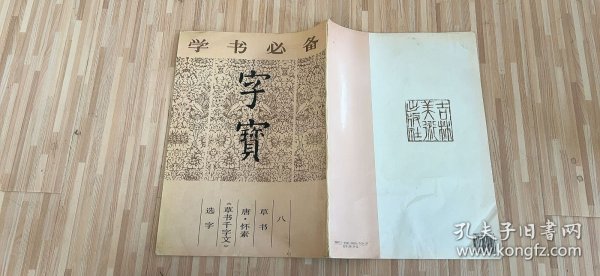 学书必备
字寶
八
草书
唐·怀素
《草书千字文》
选字
吉林
美术
出版社
孔夫子旧书网
www.kongfz.com